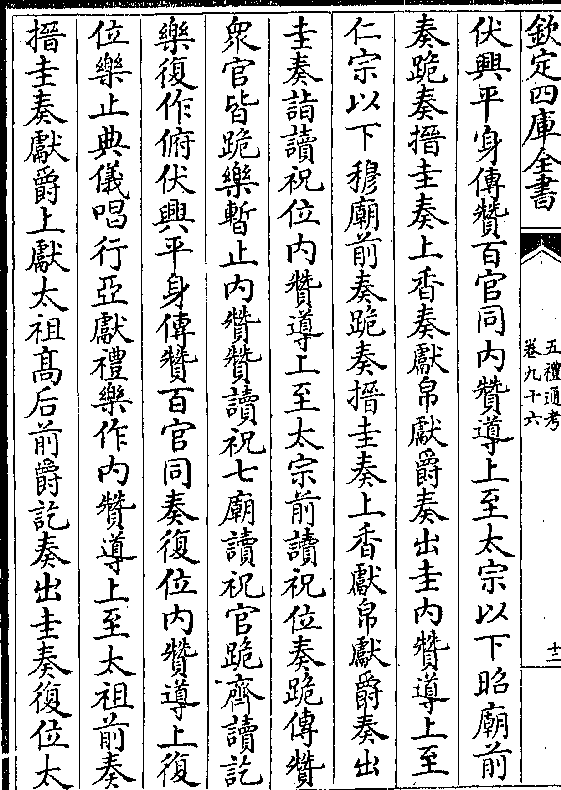 欽定四庫全書
五禮通考
卷九十六
十二
伏興平身傳贊百官同内贊導上至太宗以下昭廟前
奏跪奏搢圭奏上香奏獻帛獻爵奏出圭内贊導上至
仁宗以下穆廟前奏跪奏搢圭奏上香獻帛獻爵奏出
圭奏詣讀祝位内贊導上至太宗前讀祝位奏跪傳贊
衆官皆跪樂暫止内贊贊讀祝七廟讀祝官跪齊讀訖
樂復作俯伏興平身傳贊百官同奏復位内贊導上復
位樂止典儀唱行亞獻禮樂作内贊導上至太祖前奏
搢圭奏獻爵上獻太祖髙后前爵訖奏出圭奏復位太